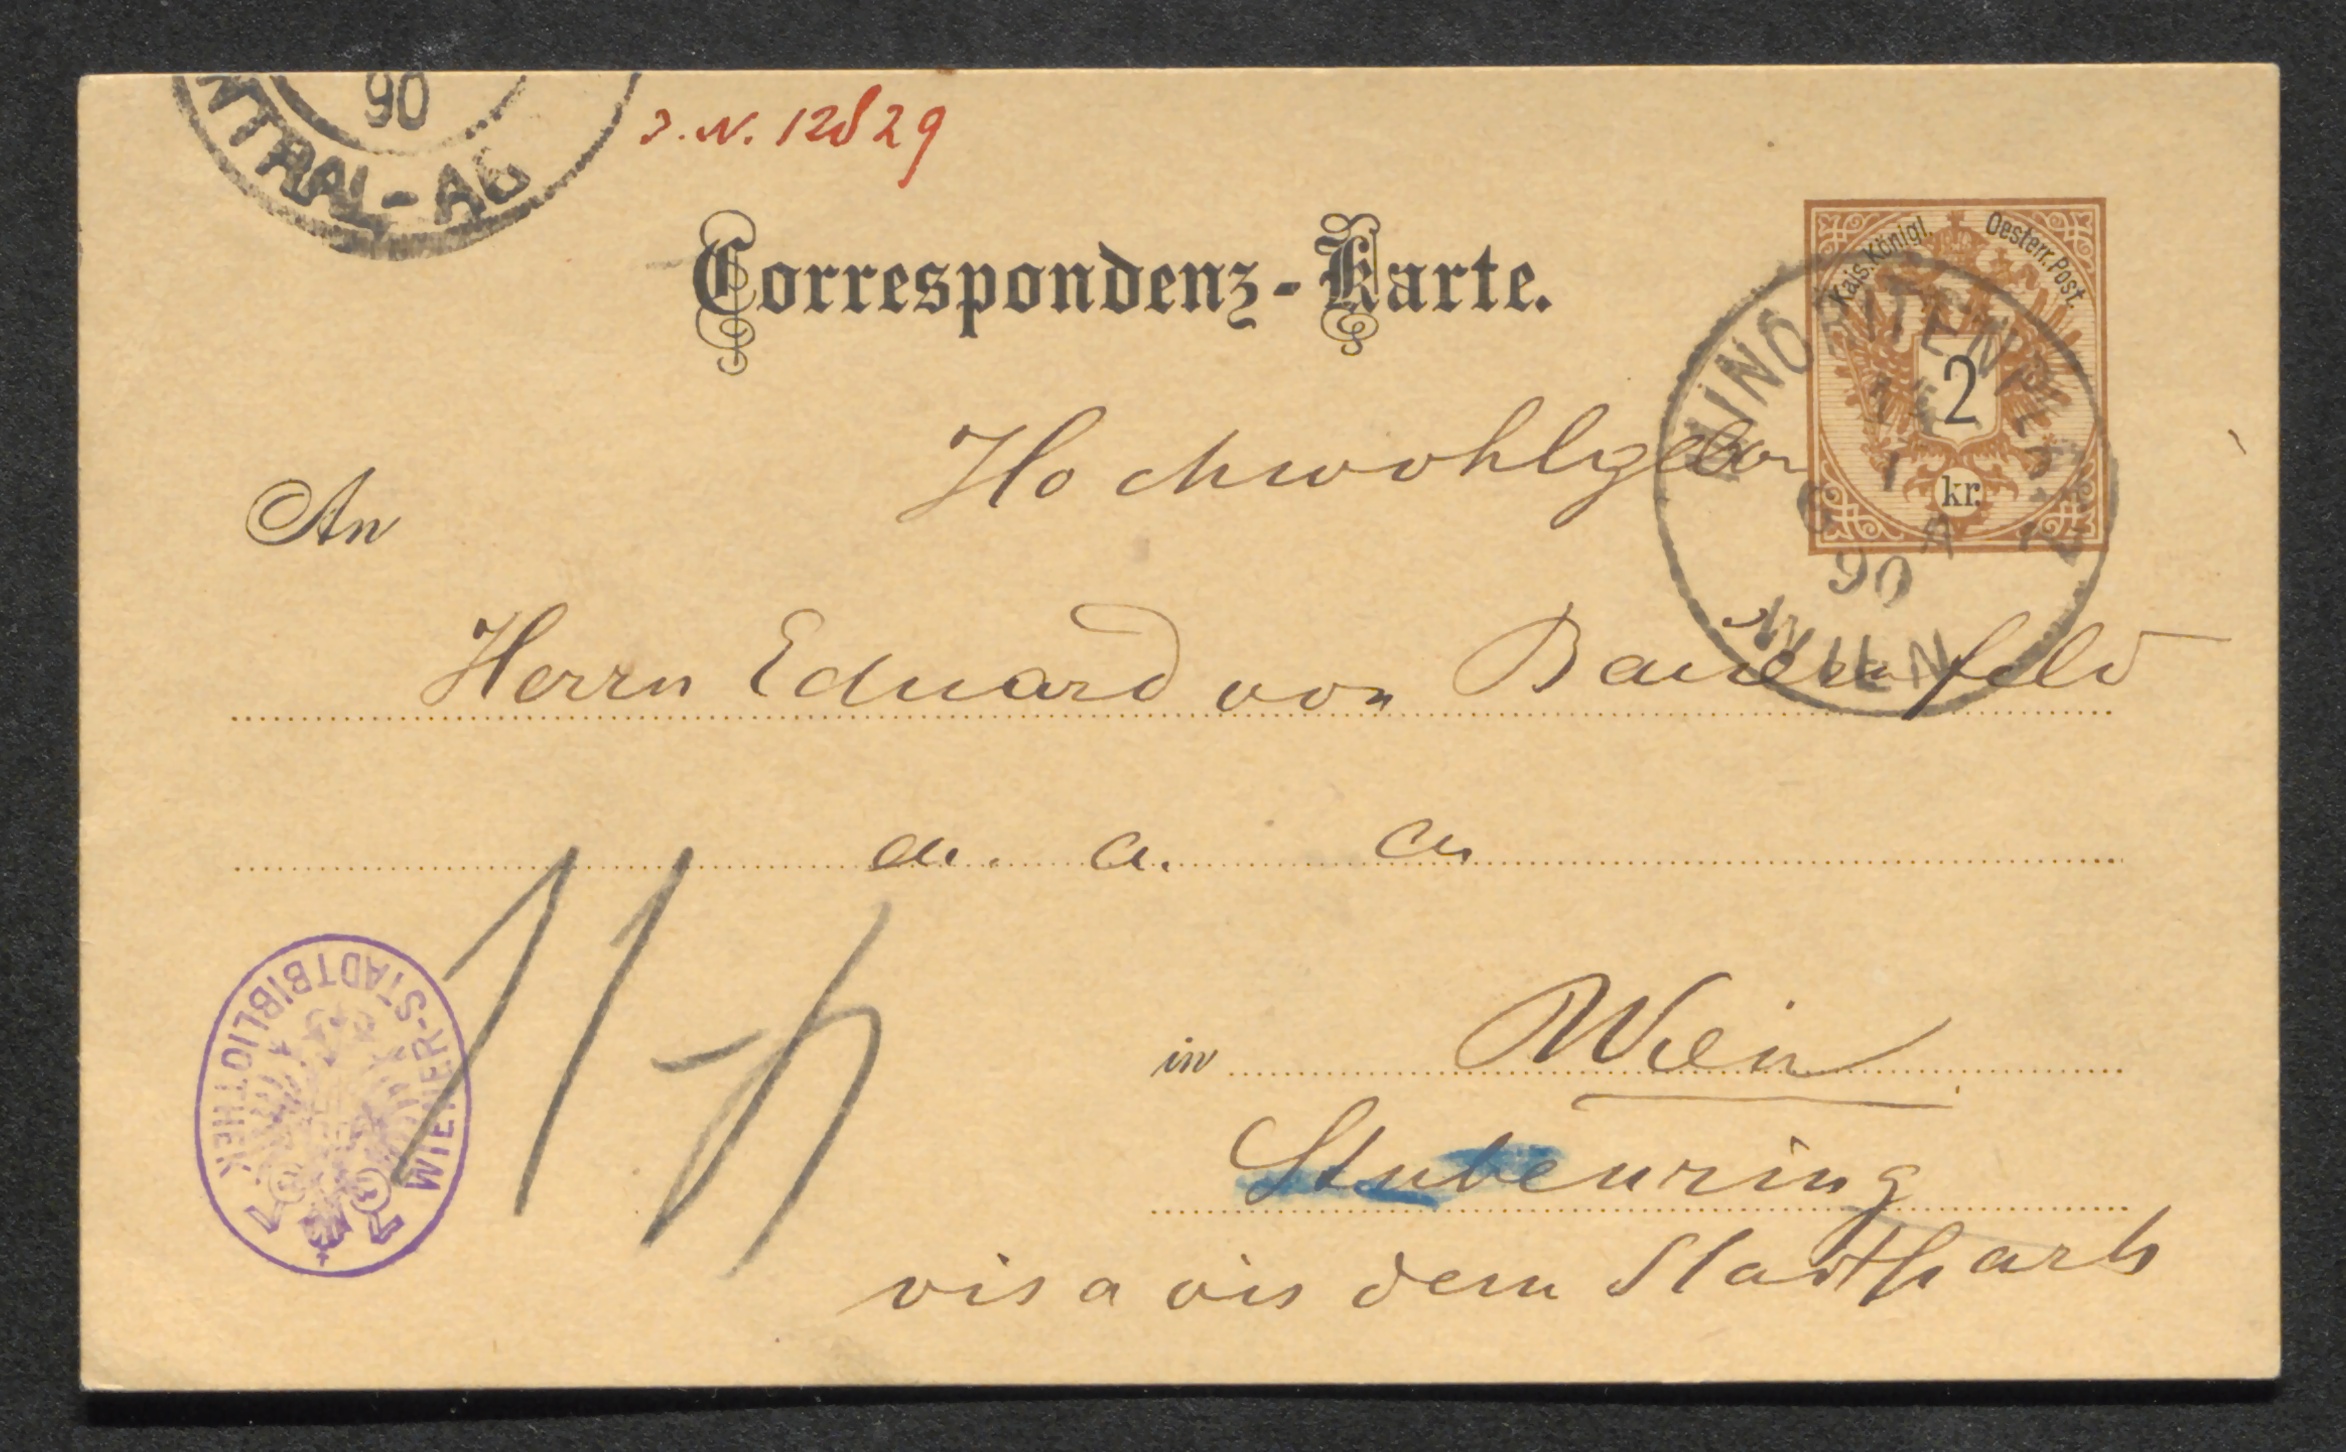 90
NTRAL-AG
J.N. 12829
Correspondenz-Karte.
Kais. Königl. Oesterr. Post.
2
kr.
MINORITENPL
1
90
WIEN
Hochwohlgebor
An
Herrn Eduard von Bauernfeld
WIENER-STADTBIBLIOTHEK
in Wien
Stubenring
vis a vis dem Stadtpark